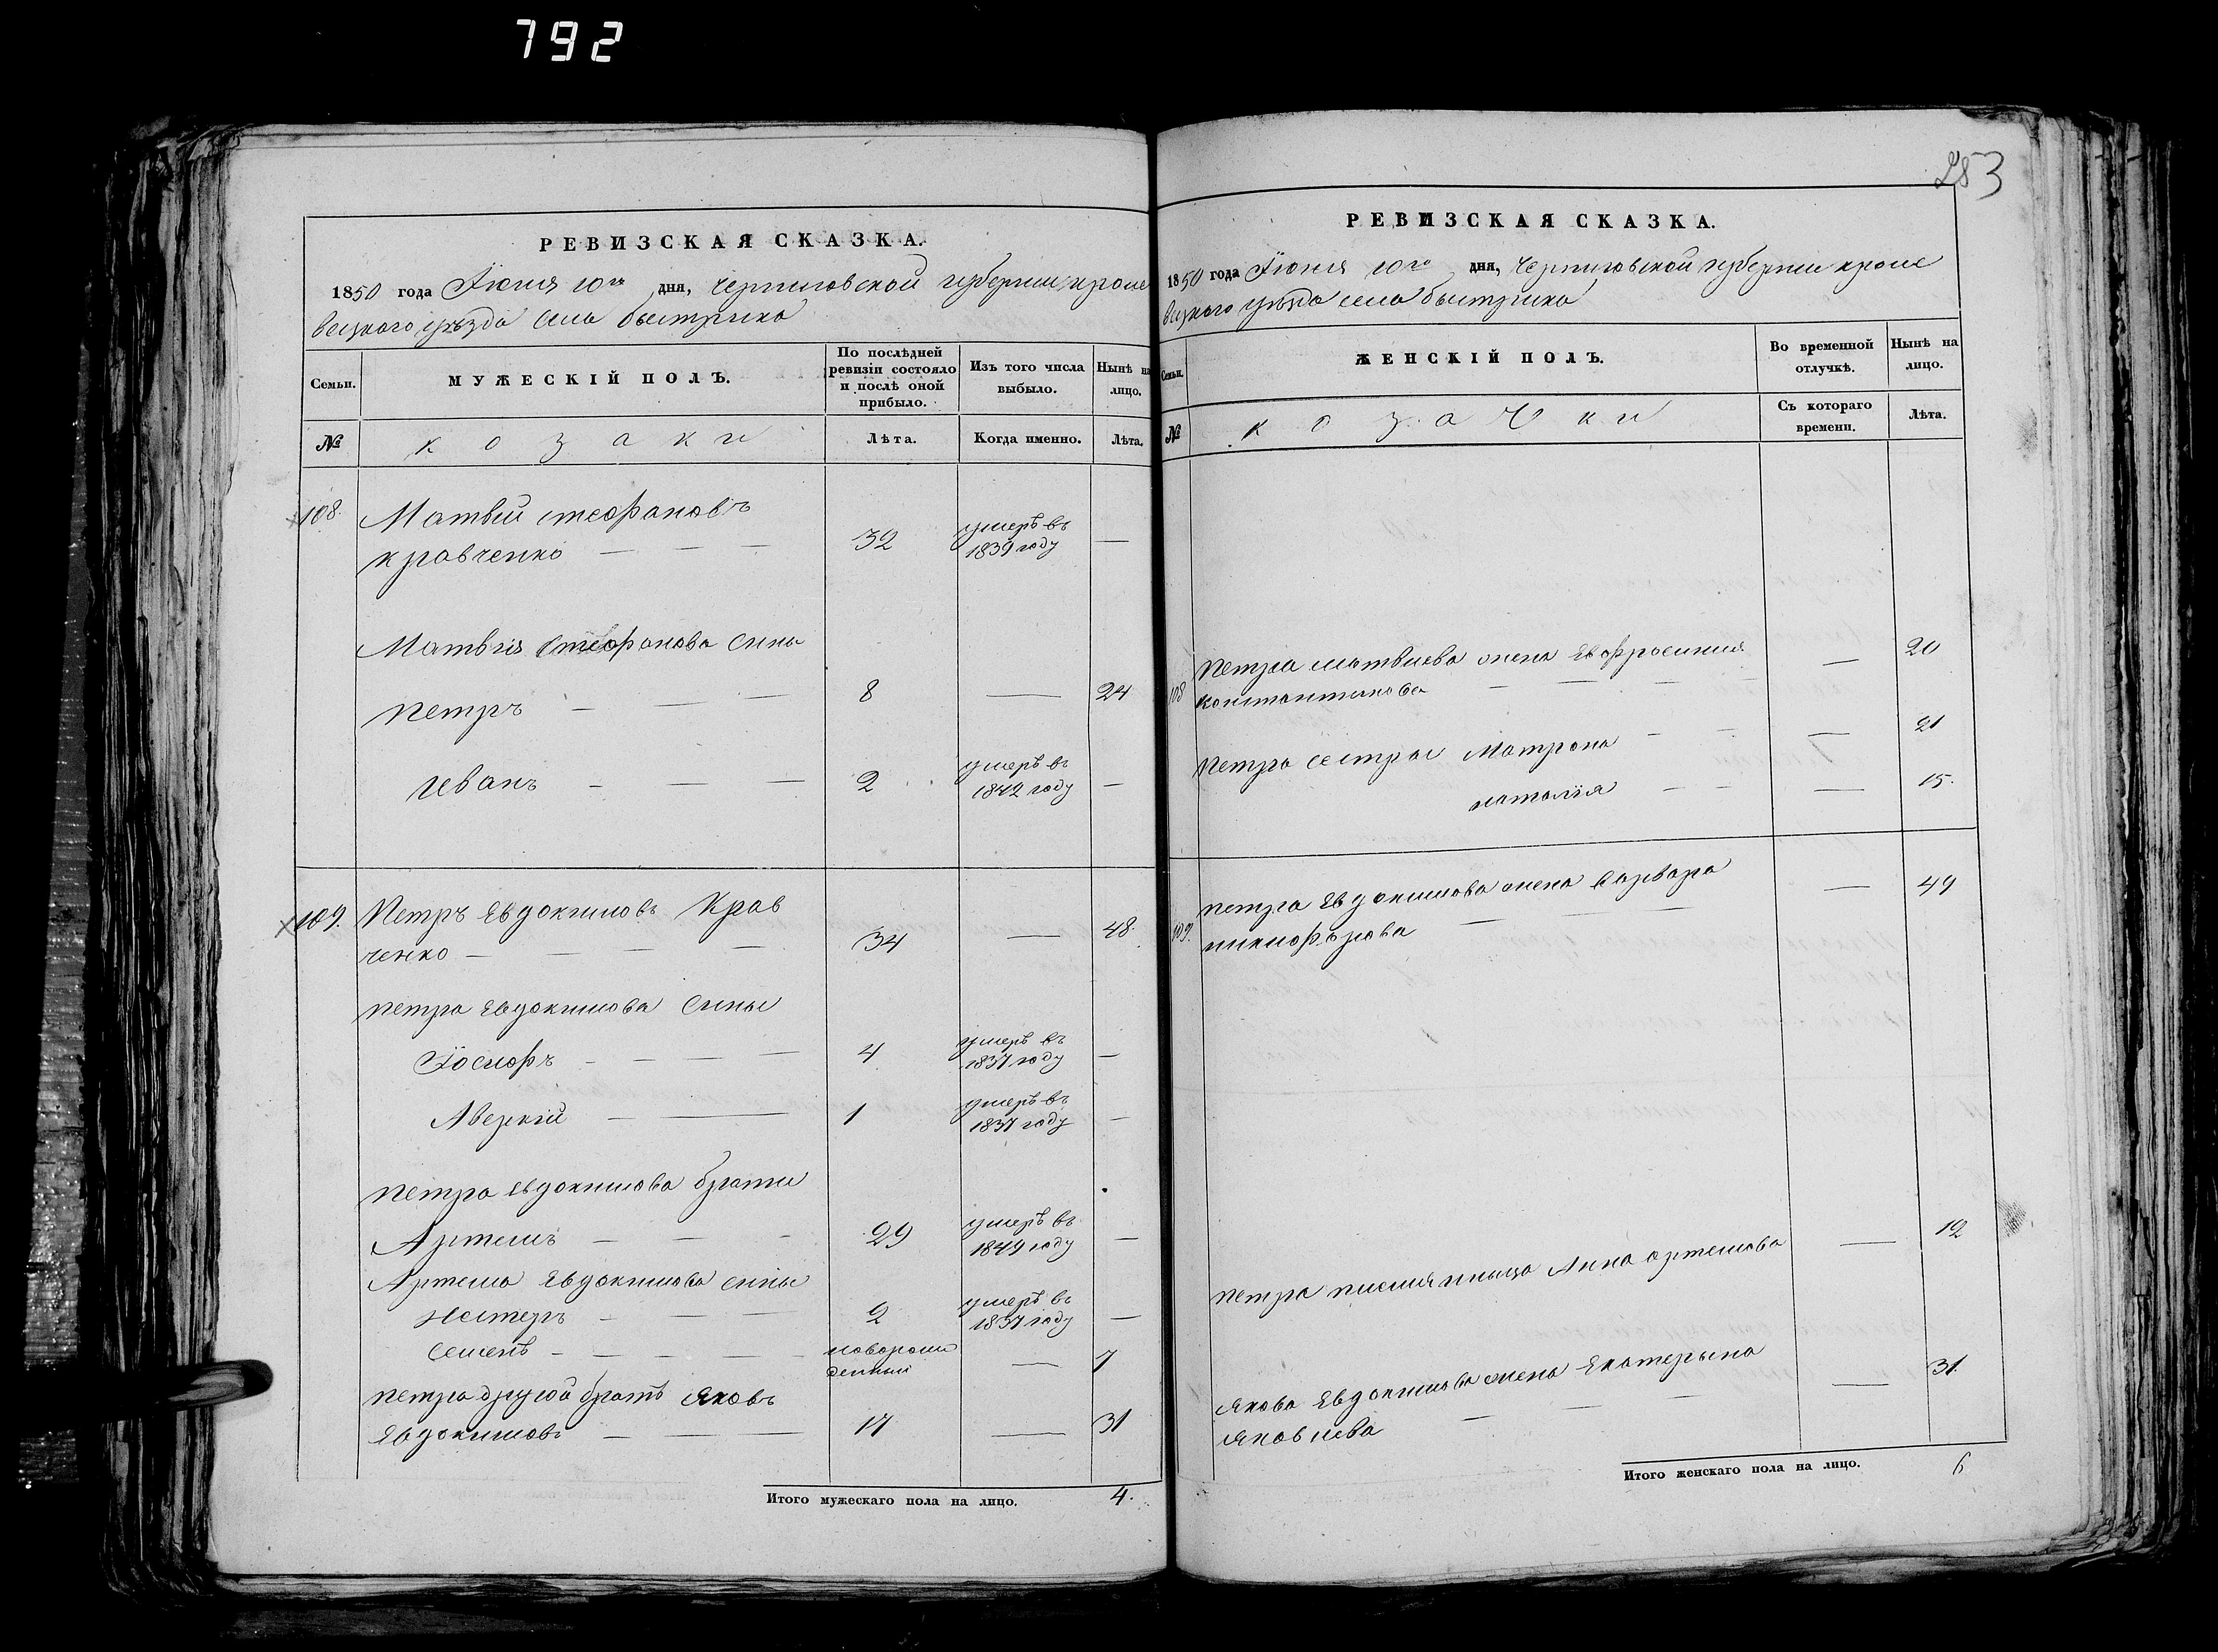 792
РЕВИЗСКАЯ СКАЗКА.
1850 года Іюня 10го дня, Черниговской губерніи кроле
вецкого уѣзда села быстрика
Семьи. МУЖЕСКІЙ ПОЛЪ. По послѣдней ревизіи состояло и послѣ оной прибыло. Изъ того числа выбыло. Нынѣ на лицо.
№ козаки Лѣта. Когда именно. Лѣта.
108. Матвій стефановъ
кравченко — — — 32 умерѣ въ 1839 году —
Матвія Стефанова сины
петръ — — — 8 — 24
иванъ — — — 2 умерѣ въ 1842 году —
109. Петръ Евдокимовъ Крав
ченко — — — — 34 — 48.
петра Евдокимова сины
Іосифъ — — — — 4 умерѣ въ 1837 году —
Аверкій — — 1 умерѣ въ 1837 году —
петра Евдокимова брати
Артемъ — — — 29 умерѣ въ 1849 году —
Артема Евдокимова сины
нестеръ — — — 2 умерѣ въ 1837 году —
семенъ — — — — новорожденный — 7
петра другой братъ Яковъ
Евдокимовъ — — — 17 — 31
Итого мужескаго пола на лицо. 4.
283
РЕВИЗСКАЯ СКАЗКА.
1850 года Іюня 10го дня, Черниговской губерніи кроле
вецкого уѣзда села быстрика
Семьи. ЖЕНСКІЙ ПОЛЪ. Во временной отлучкѣ. Нынѣ на лицо.
№ козачки Съ котораго времени. Лѣта.
108 Петра матвиева жена Евфросиния — 20
константинова — — — —
Петра сестры Матрона — — — 21
наталія — — — 15.
109. петра Евдокимова жена варвара — 49
никифорова — — —
петра племянныца Анна артемова — 12
Якова Евдокимова жена Екатерына — 31.
яковлева — — —
Итого женскаго пола на лицо. 6